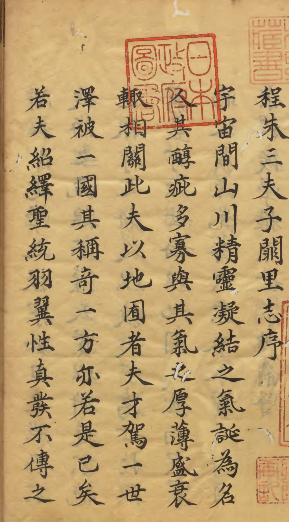 程朱三夫子闕里志序
宇宙間山川精靈凝結之氣誕為名
其醇疵多寡與其氣厚薄盛衰
輙相關此夫以地囿者夫才駕一世
澤被一國其稱竒一方亦若是已矣
若夫紹繹聖統羽翼性真發不傳之
日本
政府
圖書